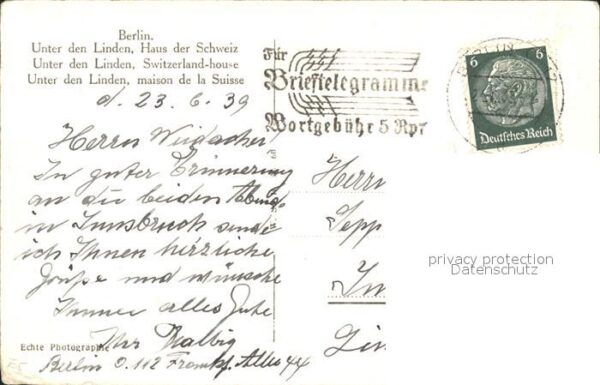 Berlin.
Unter den Linden, Haus der Schweiz
Unter den Linden, Switzerland-house
Unter den Linden, maison de la Suisse
d. 23. 6. 39
Herrn
In guter Erinnerung
an die beiden Abende
in Innsbruck sende
ich Ihnen herzliche
Grüße und wünsche
Immer alles Gute
Ihr
Echte Photographie
Berlin O. 112 Frankf. Allee 44
Für
Brieftelegramme
Wortgebühr 5 Rpf
6 6
Deutsches Reich
Herrn
Sepp
In
privacy protection
Datenschutz